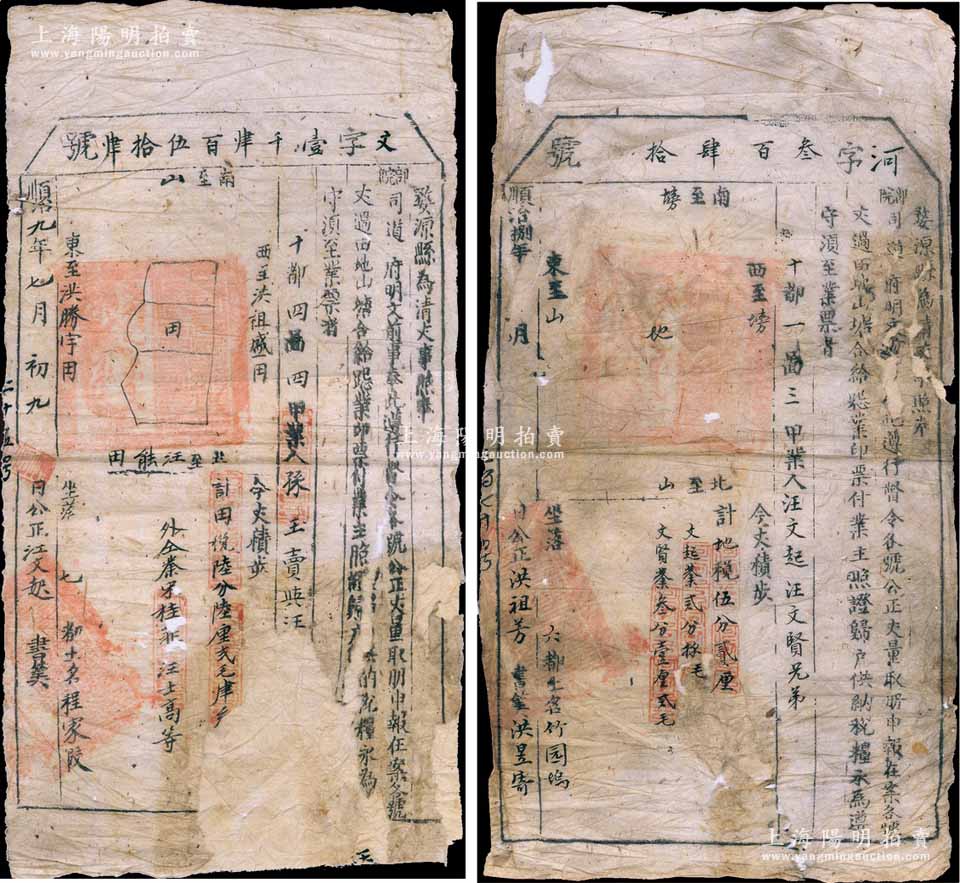 上海陽明拍賣
www.yangmingauction.com
文字壹千肆百伍拾肆號
婺源縣為清丈事照奉
御院司道府明文前事奉此遵行督令各號公正丈量取册申報在案各號
丈過田地山塘合給悉業印票付業主照證歸戶
的死糧永為
守須至業票者
十都四啚四甲業人孫玉賣與汪
今丈積步
計田稅陸分陸厘弍毛肆
汪士高等
南至山
西至洪祖
北至汪熊田
東至洪勝宇田
田
坐落
七都土名程家段
順治九年七月初九
日公正汪文起
書算
二十五號
上海陽明拍賣
www.yangmingauction.com
河字叁百肆拾號
婺源縣為清丈事照奉
御院司道府明文前事奉此遵行督令各號公正丈量取册申報在案各號
丈過田地山塘合給悉業印票付業主照證歸戶供納稅糧永為遵
守須至業票者
十都一啚三甲業人汪文起汪文賢兄弟
今丈積步
計地稅伍分貳厘
文起叁弍分捌毛
文賢叁叁分壹厘弍毛
南至塝
西至塝
北至山
東至山
地
坐落
六都土名竹园塢
順治捌年
月
日公正洪祖芳
書算洪昱寄
上海陽明拍賣
www.yangmingauction.com
上海陽明拍賣
www.yangmingauction.com